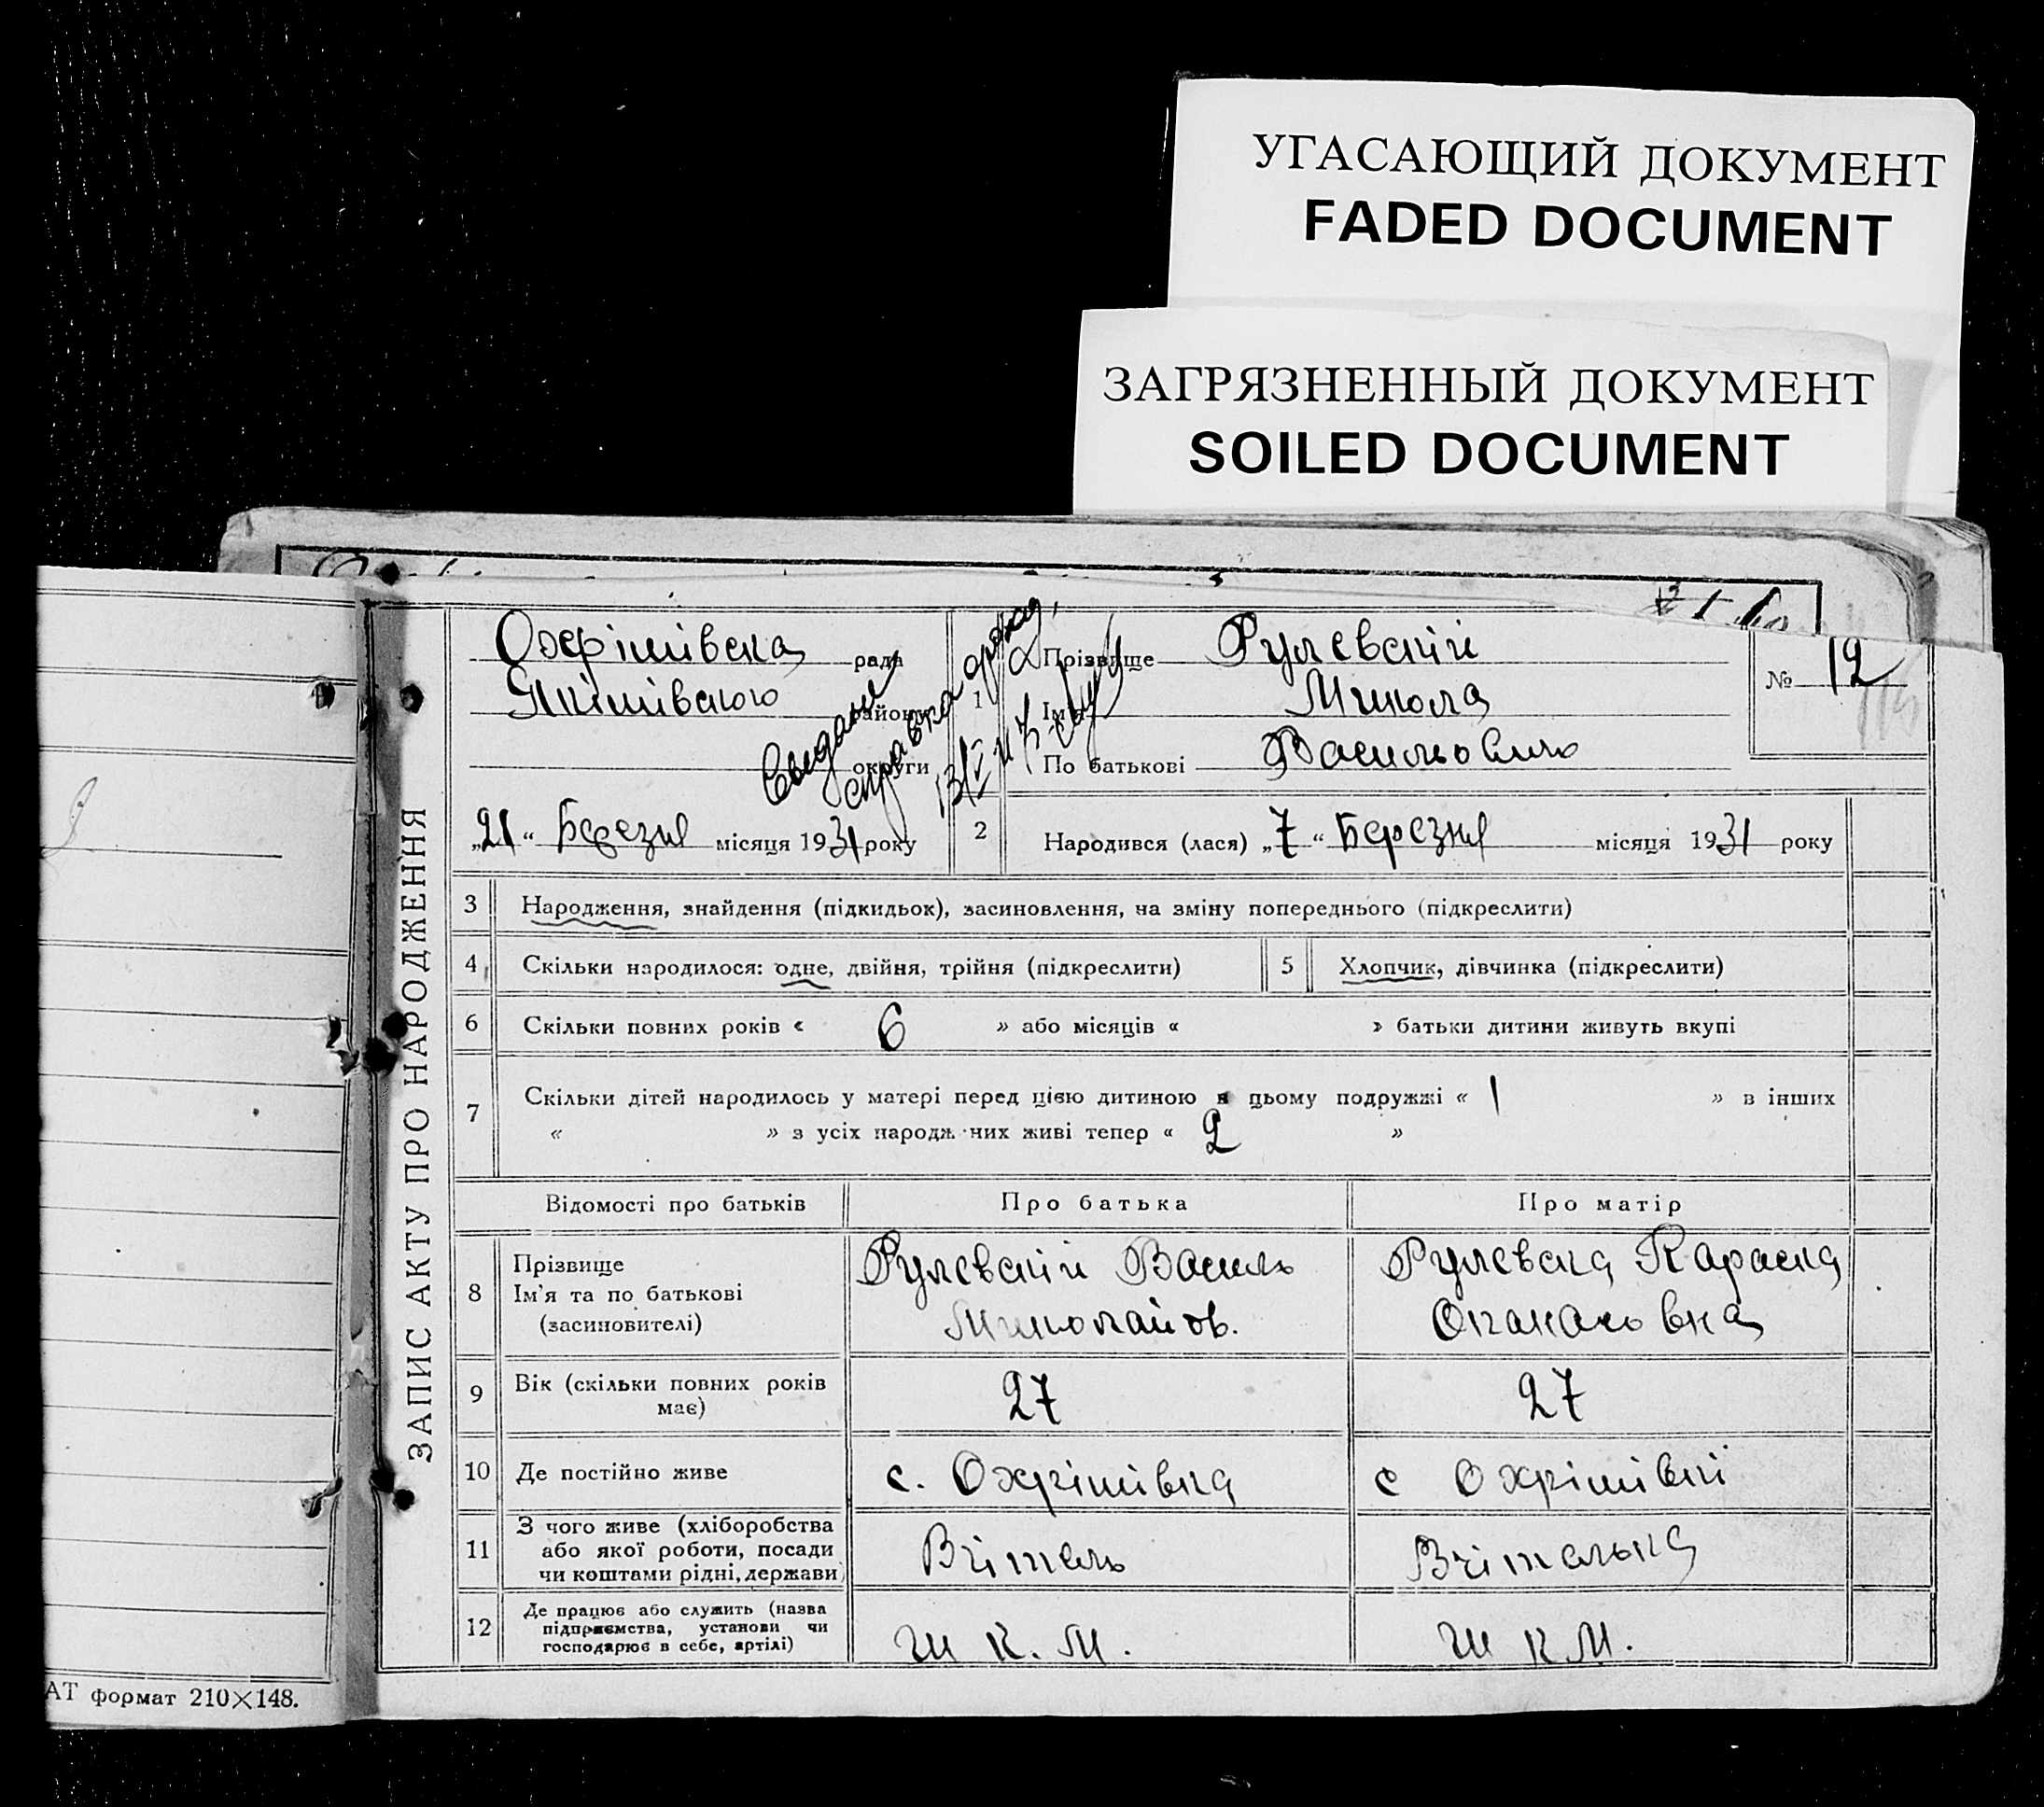 УГАСАЮЩИЙ ДОКУМЕНТ
FADED DOCUMENT
ЗАГРЯЗНЕННЫЙ ДОКУМЕНТ
SOILED DOCUMENT
ЗАПИС АКТУ ПРО НАРОДЖЕННЯ
Охрімівска рада
Якімівського району
округи
„21“ Березня місяця 1931 року
справка
1 Прізвище Рулевский
Ім'я Микола
По батькові Васильович
№ 12
2 Народився (лася) „7“ Березня місяця 1931 року
3 Народження, знайдення (підкидьок), засиновлення, на зміну попереднього (підкреслити)
4 Скільки народилося: одне, двійня, трійня (підкреслити) 5 Хлопчик, дівчинка (підкреслити)
6 Скільки повних років « 6 » або місяців « » батьки дитини живуть вкупі
7 Скільки дітей народилось у матері перед цією дитиною в цьому подружжі « 1 » в інших
« » з усіх народж них живі тепер « 2 »
Відомості про батьків Про батька Про матір
8 Прізвище
Ім'я та по батькові
(засиновителі)
Рулевский Василь
Миколайов.
Рулевска Параска
Опанасовна
9 Вік (скільки повних років
має)
27 27
10 Де постійно живе с. Охрімівка с Охрімівкі
11 З чого живе (хліборобства
або якої роботи, посади
чи коштами рідні, держави)
Вчітель Вчителька
12 Де працює або служить (назва
підприємства, установи чи
господарює в себе, артілі)
Ш К. М. Ш К М.
АТ формат 210×148.